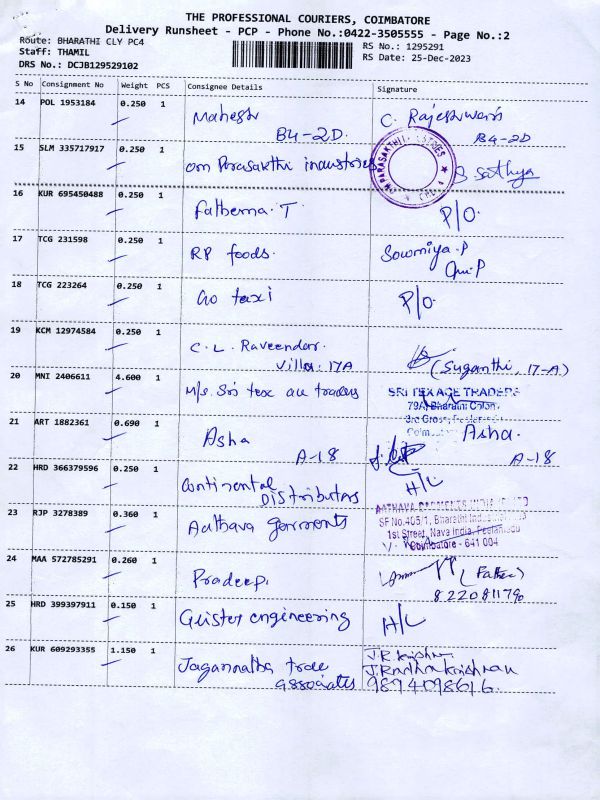 THE PROFESSIONAL COURIERS, COIMBATORE
Delivery Runsheet - PCP - Phone No.:0422-3505555 - Page No.:2
Route: BHARATHI CLY PC4
Staff: THAMIL
DRS No.: DCJB129529102
RS No.: 1295291
RS Date: 25-Dec-2023
S No Consignment No Weight PCS Consignee Details Signature
14 POL 1953184 0.250 1 Mahesh C. Rajeshwari
B4-2D. B4-2D
15 SLM 335717917 0.250 1 om Parasakthi industries S Sathya
16 KUR 695450488 0.250 1 Fathema. T P/O.
17 TCG 231598 0.250 1 RP foods. Sowmiya.P
18 TCG 223264 0.250 1 Go taxi P/O.
19 KCM 12974584 0.250 1 C. L. Raveendar.
Villa: 17A (Suganthi, 17-A)
20 MNI 2406611 4.600 1 M/s. Sri tex ace traders SRI TEX ACE TRADERS
79A, Bharathi Colony
3rd Cross, Peelamedu
21 ART 1882361 0.690 1 Asha Asha.
A-18 A-18
22 HRD 366379596 0.250 1 Continental H/L
Distributors
23 RJP 3278389 0.360 1 Aathava garments AATHAVA GARMENTS INDIA LIMITED
SF No.405/1, Bharathi
1st Street, Nava India, Peelamedu
Coimbatore - 641 004
24 MAA 572785291 0.260 1 Pradeep. (Father)
8220811790
25 HRD 399397911 0.150 1 Geister engineering H/L
26 KUR 609293355 1.150 1 Jagannatha trade J.R. Krishnan
associates J.Radhakrishnan
9894098616.